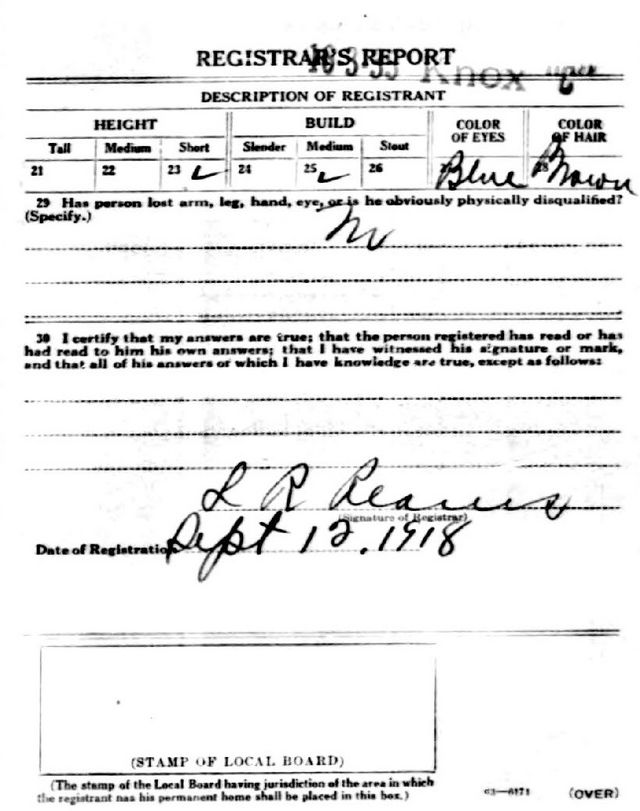 REGISTRAR'S REPORT
Knox
DESCRIPTION OF REGISTRANT
HEIGHT BUILD COLOR OF EYES COLOR OF HAIR
Tall Medium Short Slender Medium Stout
21 22 23 ✓ 24 25 ✓ 26 Blue Brown
29 Has person lost arm, leg, hand, eye, or is he obviously physically disqualified?
(Specify.)
No
30 I certify that my answers are true; that the person registered has read or has
had read to him his own answers; that I have witnessed his signature or mark,
and that all of his answers of which I have knowledge are true, except as follows:
L R Reams
(Signature of Registrar)
Date of Registration Sept 12, 1918
(STAMP OF LOCAL BOARD)
(The stamp of the Local Board having jurisdiction of the area in which
the registrant has his permanent home shall be placed in this box.)
03—6171 (OVER)